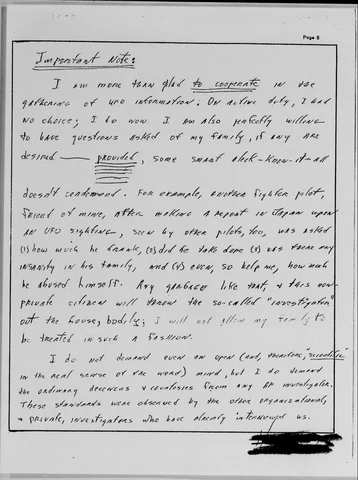 Page 8
Important Note:
I am more than glad to cooperate in the
gathering of UFO information. On active duty, I had
no choice; I do now. I am also perfectly willing
to have questions asked of my family, if any are
desired — provided, some smart aleck-know-it-all
doesn't condemend. For example, another fighter pilot,
friend of mine, after making a report in Japan upon
an UFO sighting, seen by other pilots, too, was asked
(1) how much he drank, (2) did he take dope (3) was there any
insanity in his family, and (4) even, so help me, how much
he abused himself. Any garbage like that, & this now-
private citizen will throw the so-called "investigator"
out the house, bodily; I will not allow my family to
be treated in such a fashion.
I do not demand even an open (and, therefore, scientific"
in the real sense of the word) mind, but I do demand
the ordinary decencies & courtesies from any AF investigator.
These standards were observed by the other organizational,
& private, investigators who have already interviewed us.